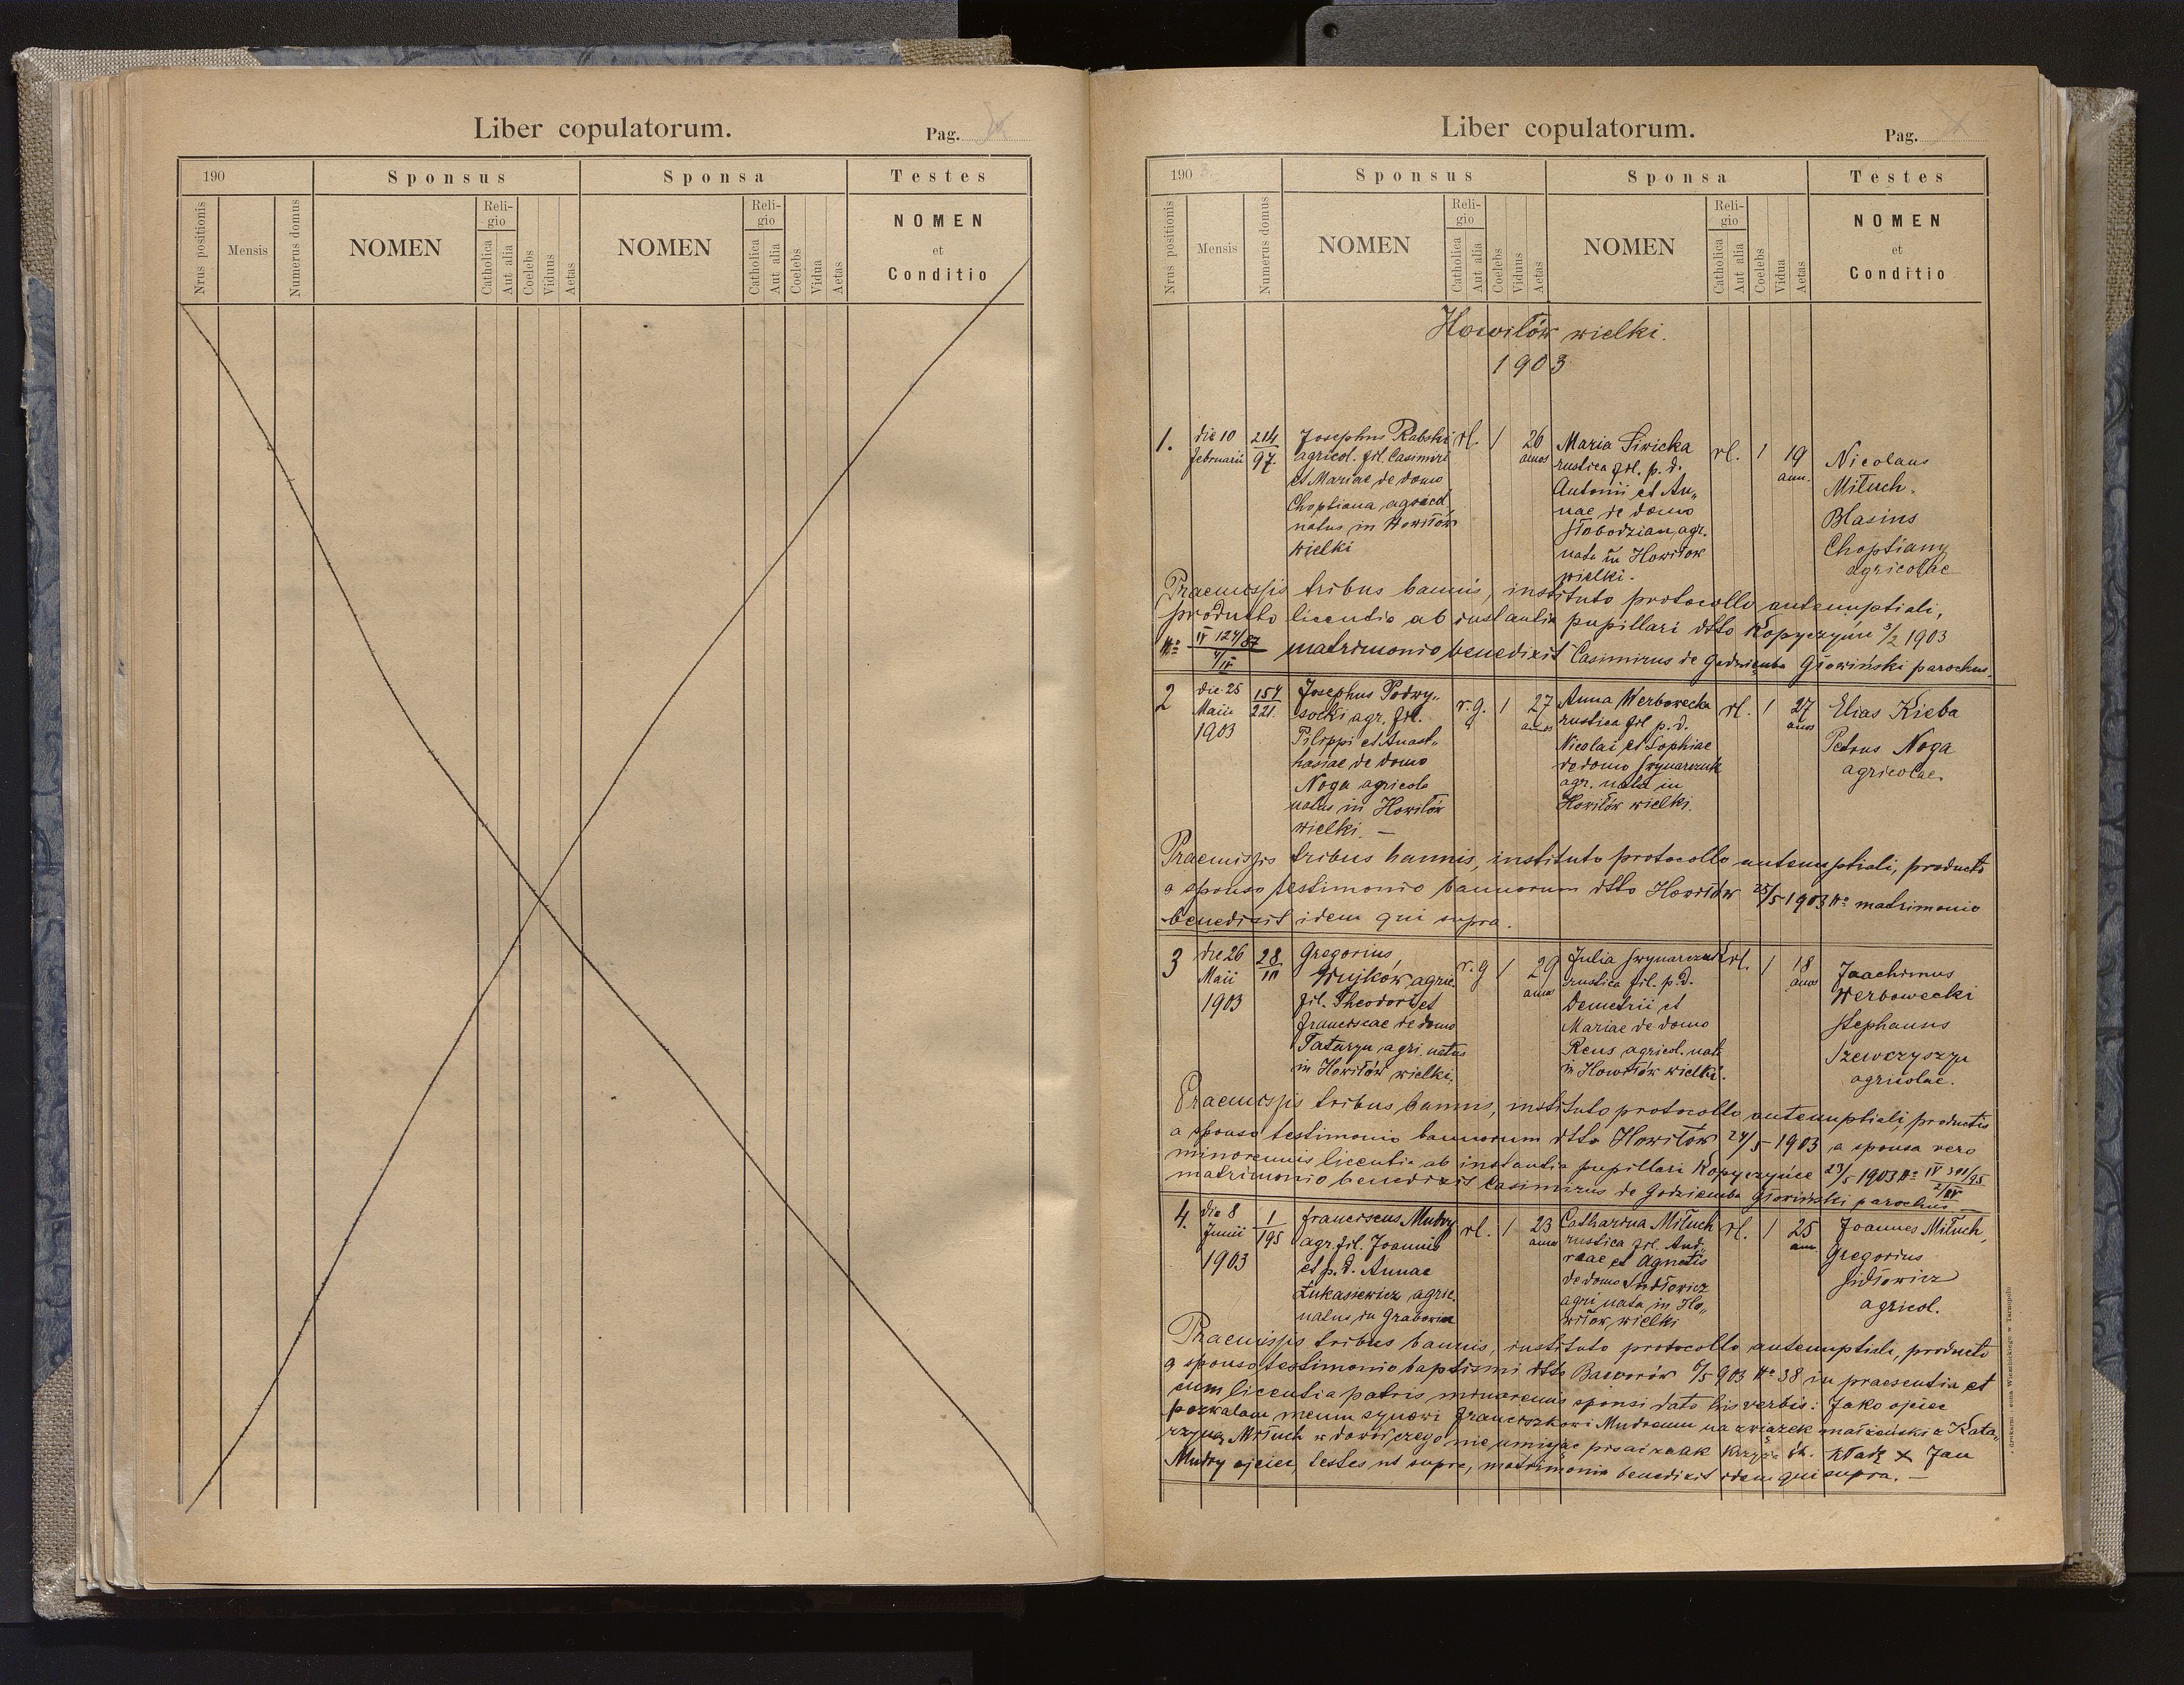 Liber copulatorum.
Pag.
190
Sponsus
Sponsa
Testes
Nrus positionis
Mensis
Numerus domus
NOMEN
Reli-
gio
Catholica
Aut alia
Coelebs
Viduus
Aetas
NOMEN
Reli-
gio
Catholica
Aut alia
Coelebs
Vidua
Aetas
NOMEN
et
Conditio
Liber copulatorum.
Pag.
190
Sponsus
Sponsa
Testes
Nrus positionis
Mensis
Numerus domus
NOMEN
Reli-
gio
Catholica
Aut alia
Coelebs
Viduus
Aetas
NOMEN
Reli-
gio
Catholica
Aut alia
Coelebs
Vidua
Aetas
NOMEN
et
Conditio
Howiłów wielki.
1903
1.
die 10
februarii
214
97.
Josephus Rabski
agricol. fil. Casimiri
et Mariae de domo
Choptiana agricol.
natus in Howiłów
wielki
rl. 1 26
annos
Maria Siwicka
rustica fil. p. d.
Antonii et An„
nae de domo
Słobodzian, agr.
nata in Howiłow
wielki.
rl. 1 19
ann.
Nicolaus
Miłuch.
Blasius
Choptiany
agricolae
Praemissis tribus bannis, instituto protocollo antenuptiali,
producto licentia ab instantia pupillari dtto Kopyczyńce 3/2 1903
No IV 124/87
4/IV matrimonio benedixit Casimirus de Godziemba Głowiński parochus.
2
die 25
Maii
1903
154
221.
Josephus Podwy„
socki agr. fil.
Pilippi et Anast„
hasiae de domo
Noga agricola
natus in Howiłów
wielki. —
r.g. 1 27
annos
Anna Werbowecka
rustica fil p. d.
Nicolai et Sophiae
de domo Swynarczuk
agr. nata in
Howiłów wielki.
rl. 1 27
annos
Elias Kieba
Petrus Noga
agricolae.
Praemissis tribus bannis, instituto protocollo antenuptiali, producto
a sponso testimonio bannorum dtto Howiłów 25/5 1903 No matrimonio
benedixit idem qui supra.
3
die 26
Maii
1903
28
111
Gregorius
Wujków, agric.
fil. Theodori et
Franciscae de domo
Tataryn, agri. natus
in Howiłów wielki.
r.g 1 29
annos
Julia Swynarczuk
rustica fil. p. d.
Demetrii et
Mariae de domo
Reus agricol. nata
in Howiłów wielki.
rl. 1 18
annos
Joachimus
Werbowecki
Stephanus
Szewczyszyn
agricolae.
Praemissis tribus bannis, instituto protocollo antenuptiali, productis
a sponso testimonio bannorum dtto Howiłów 24/5 1903 a sponsa vero
minorennis licentia ab instantia pupillari Kopyczyńce 23/5 1903 No IV 391/95
2/IV
matrimonio benedixit Casimirus de Godziemba Głowiński parochus. —
4.
die 8
Junii
1903
1
195
Franciscus Mudry
agr. fil. Joannis
et p. d. Annae
Łukasiewicz agric.
natus in
rl. 1 23
annos
Catharina Miłuch
rustica fil. And„
reae et Agnetis
de domo
agri nata in Ho„
wiłow, wielki
rl. 1 25
ann.
Joannes Miłuch,
Gregorius
agricol.
Praemissis tribus bannis, instituto protocollo antenuptiali, producto
a sponso testimonio baptismi dtto Baworów 6/5 903 No 38 in praesentia et
cum licentia patris minorennis sponsi dato his verbis: Jako ojciec
pozwalam memu synowi Franciszkowi Mudremu na związek małżeński z Kata„
rzyną Miłuch w dowód czego nie umiejąc pisać znak krzyża św. kładę × Jan
Mudry ojciec, testes ut supra, matrimonio benedixit idem qui supra. —